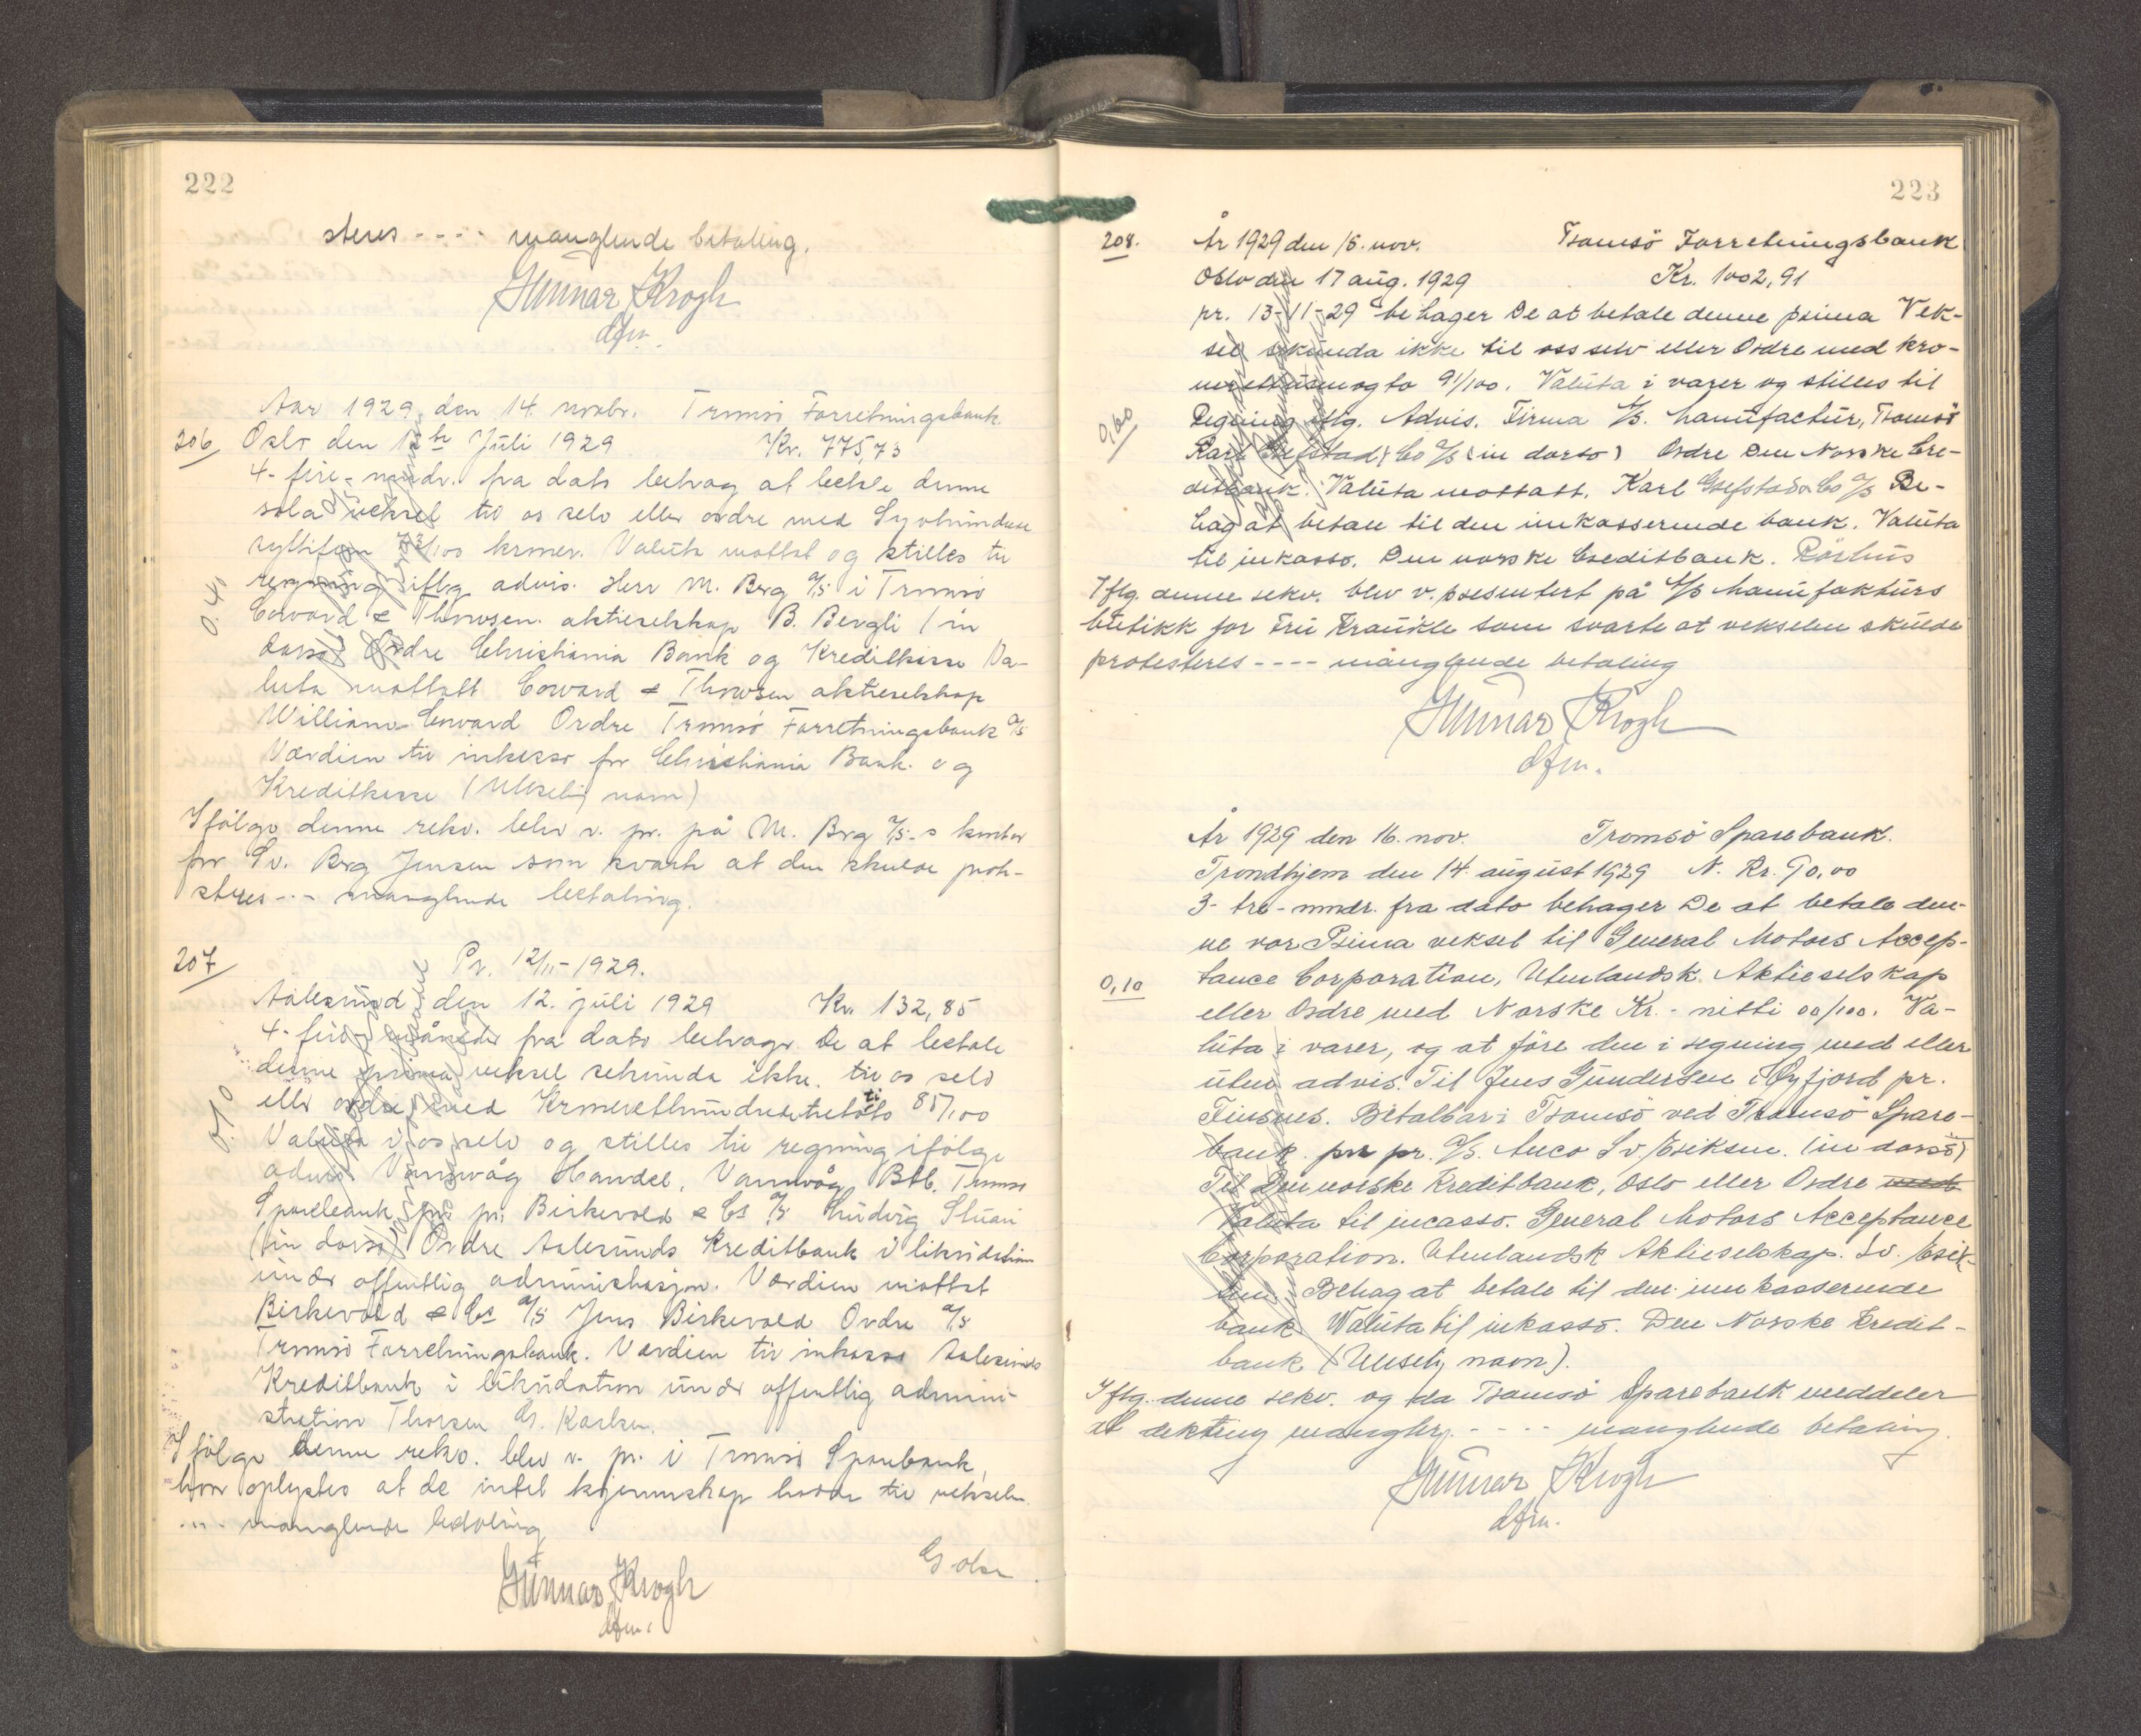 222
steres - - - - manglende betaling.
Gunnar Krogh
dfm.
Aar 1929 den 14. novbr. Tromsö Forretningsbank
206 Oslo den 12te Juli 1929 Kr. 775,73
4- fire - mndr. fra dato behag at betale denne
sola veksel til os selv eller ordre med Syvhundrede
syttifem 73/100 kroner. Valuta mottat og stilles til
regning iflg advis. Herr M. Berg A/S i Tromsö
0.40
Coward & Thowsen aktieselskap B. Bergli (in
dorso) Ordre Christiania Bank og Kreditkasse Va-
luta mottatt Coward & Thowsen aktieselskap
William Coward Ordre Tromsö Forretningsbank A/S
Værdien til inkasso for Christiania Bank og
Kreditkasse (Uleselig navn)
Ifölge denne rekv. blev v. pr. på M. Berg A/S's kontor
for Sv. Berg Jensen som svarte at den skulde prote-
steres - - - manglende betaling.
207 Pr. 12/11-1929.
Aalesund den 12. juli 1929 Kr. 132,85
4- fire - måneder fra dato behager De at betale
denne prima veksel sekunda ikke til os selv
eller ordre med Kroneretthundredetrettito 85/100
0.10
Valuta i os selv og stilles til regning ifölge
advis Vannvåg Handel, Vannvåg Btb. Tromsö
Sparebank pr pr. Birkevold & Co A/S Ludvig
(in dorso) Ordre Aalesunds Kreditbank i likvidation
under offentlig administrasjon. Værdien mottat
Birkevold & Co A/S Jens Birkevold Ordre A/S
Tromsö Forretningsbank. Værdien til inkasso Aalesunds
Kreditbank i likvidation under offentlig admini-
stration Thorsen G. Karlsen.
Ifölge denne rekv. blev v. pr. i Tromsö Sparebank,
hvor oplystes at de intet kjennskap hadde til vekselen
- - - manglende betaling
G. Olsen
Gunnar Krogh
dfm.
223
208. År 1929 den 15. nov. Tromsö Forretningsbank
Oslo den 17 aug. 1929 Kr. 1002,91
pr. 13-11-29 behager De at betale denne prima Vek-
sel sekunda ikke til oss selv eller Ordre med kro-
nerettusenogto 91/100. Valuta i varer og stilles til
0,60 Regning iflg. Advis. Firma A/S. Manufactur, Tromsö
Karl Gjefstad & Co A/S (in dorso) Ordre Den Norske Cre-
ditbank. Valuta mottatt. Karl Gjefstad & Co A/S Be-
hag at betale til den inkasserende bank. Valuta
til inkasso. Den norske Creditbank. Rörhus
Iflg. denne rekv. blev v. presentert på A/S Manufakturs
butikk for Fru Kraükle som svarte at vekselen skulde
protesteres - - - - manglende betaling
Gunnar Krogh
dfm.
År 1929 den 16. nov. Tromsö Sparebank.
Trondhjem den 14. august 1929 N. Kr. 90,00
3- tre - mndr. fra dato behager De at betale den-
ne vor Prima veksel til General Motors Accep-
0,10 tance Corporation, Utenlandsk Aktieselskap
eller Ordre med Norske Kr. - nitti 00/100. Va-
luta i varer, og at före den i regning med eller
uten advis. Til Jens Gundersen i Öyfjord pr.
Finsnes. Betalbar i Tromsö ved Tromsö Spare-
bank. pr pr. A/S. Auco Sv. Eriksen. (in dorso)
Til Den norske Kreditbank, Oslo eller Ordre med
Valuta til incasso. General Motors Acceptance
Corporation. Utenlandsk Aktieselskap. Sv. Erik-
sen. Behag at betale til den innkasserende
bank Valuta til inkasso. Den Norske Kredit-
bank (Uleselig navn).
Iflg. denne rekv. og da Tromsö Sparebank meddeler
at dekning mangler. - - - - manglende betaling.
Gunnar Krogh
dfm.